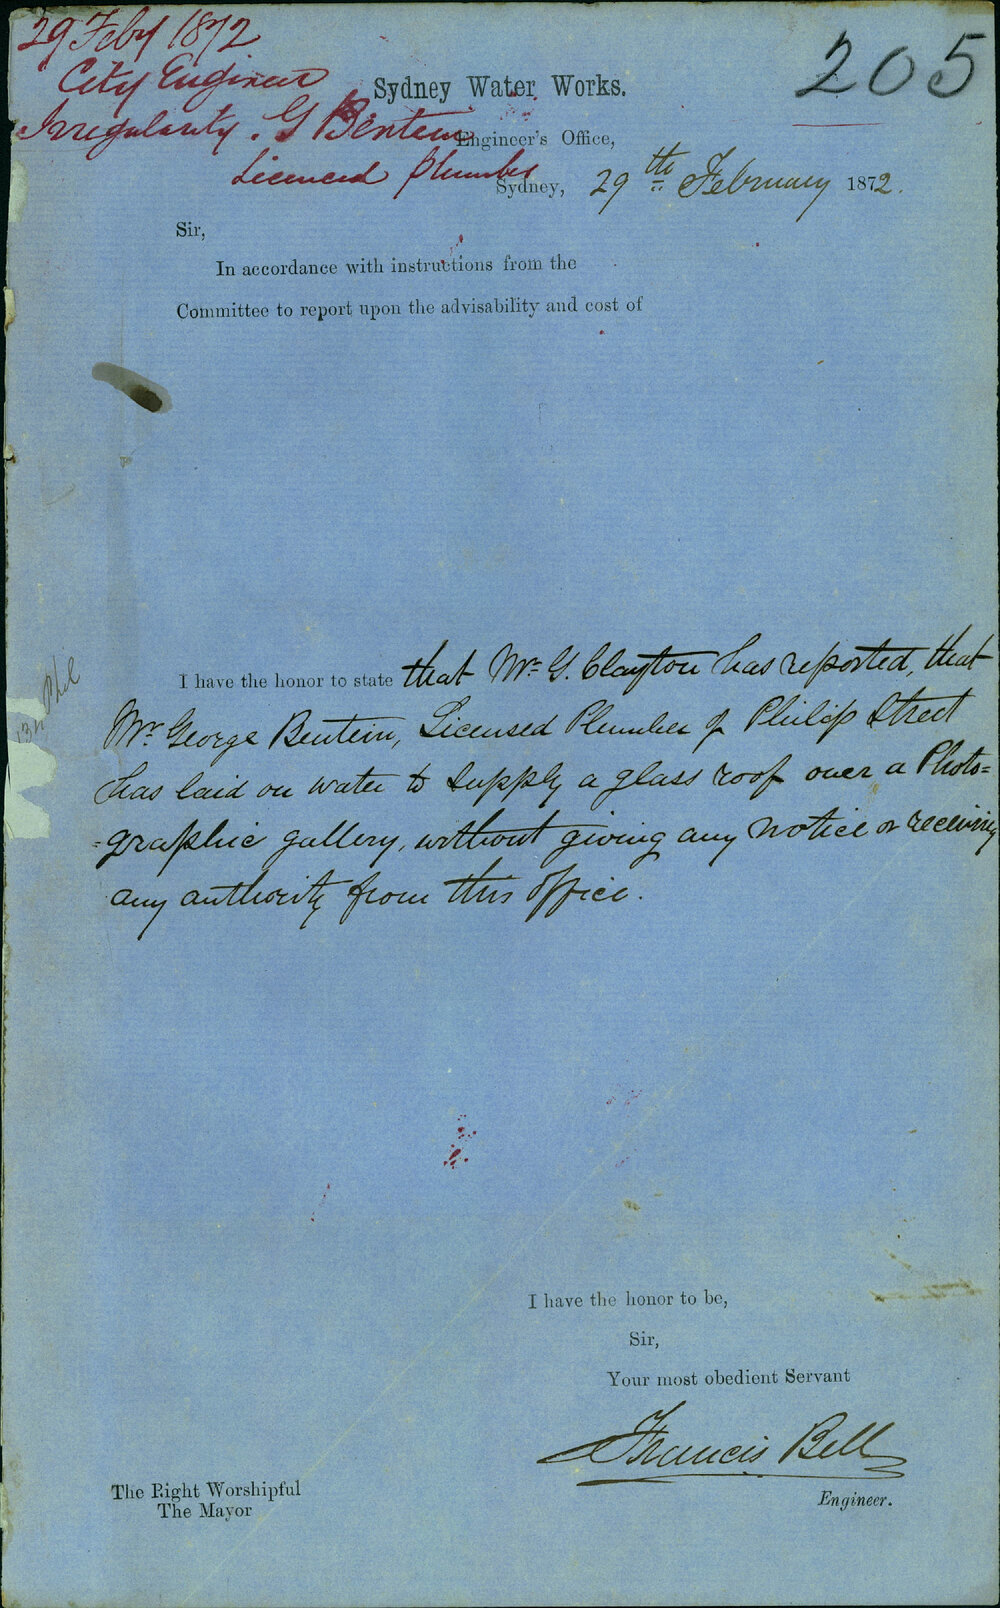 29 Feby 1872
City Engineer
Irregularity. G Bentein
Licenced Plumber
205
Sydney Water Works.
Engineer's Office,
Sydney, 29th February 1872.
Sir,
In accordance with instructions from the
Committee to report upon the advisability and cost of
I have the honor to state that Mr. G. Clayton has reported, that
Mr. George Bentein, Licensed Plumber of Philip Street
has laid on water to supply a glass roof over a Photo=
=graphic gallery, without giving any notice or receiving
any authority from this office.
I have the honor to be,
Sir,
Your most obedient Servant
Francis Bell
Engineer.
The Right Worshipful
The Mayor